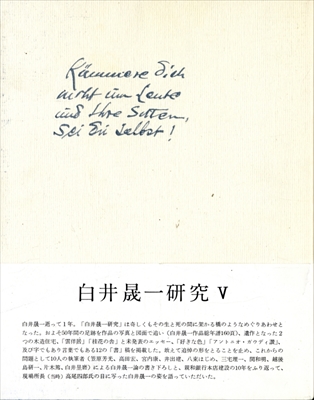 Kümmere dich
nicht um Leute
und Ihre Sitten,
Sei Du selbst!
白井晟一研究 V
白井晟一逝って1年、「白井晟一研究」は奇しくもその生と死の間に架かる橋のようなめぐりあわせと
なった。およそ50年間の足跡を作品の写真と図面で追い(白井作品総年譜160頁)、遺作となった2
つの木造住宅、「雲伴居」「桂花の舎」と未発表のエッセー、「好きな色」「アントニオ・ガウディ讃」、
及び字でもあり言葉でもある12の「書」稿を掲載した。敢えて追悼の形をとることを止め、これからの
問題として10人の執筆者(笠原芳光、高田宏、宮内康、井出建、八束はじめ、三宅理一、関和明、越後
島研一、片木篤、白井昱磨)による白井晟一論の書き下ろしと、親和銀行本店建設の10年をふり返って、
現場所長(当時)高尾四郎氏の目に写った白井晟一の姿を語っていただいた。